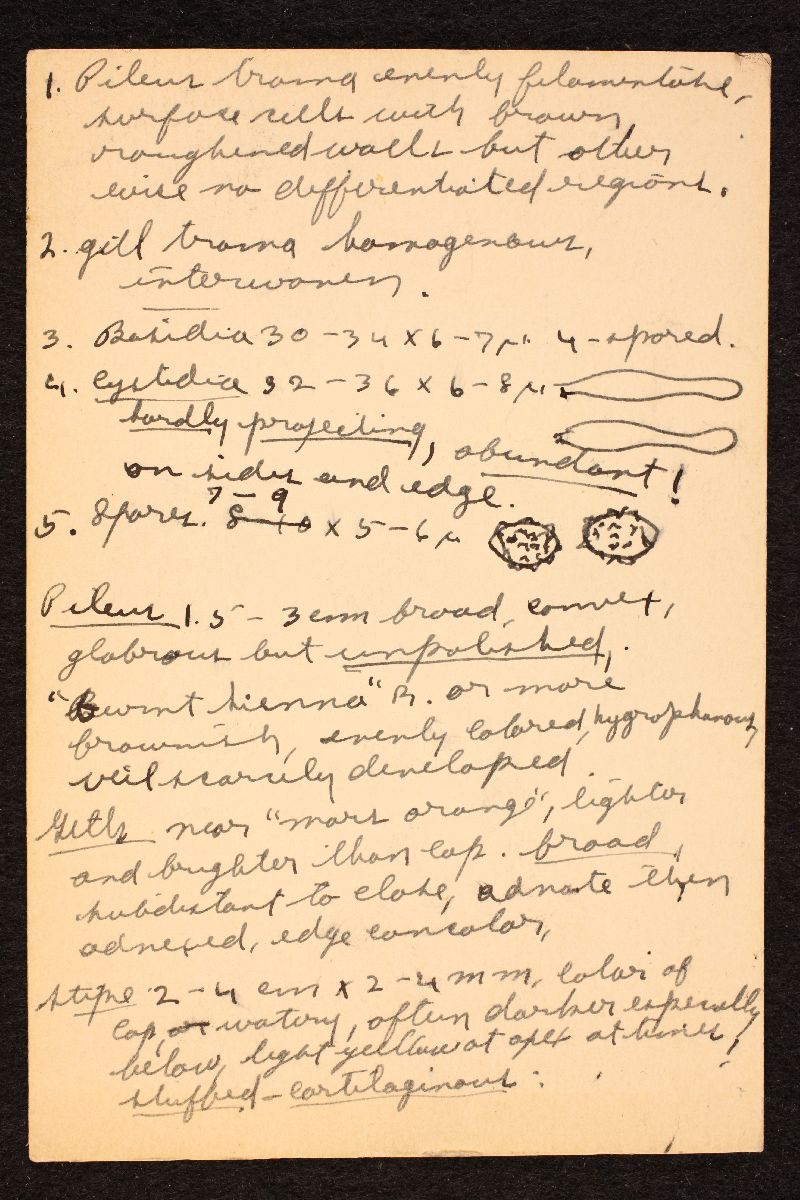 1. Pileus trama evenly filamentose,
surface cells with brown
roughened walls but other
wise no differentiated regions.
2. gill trama homogenous,
interwoven.
3. Basidia 30-34 x 6-7µ. 4-spored.
4. Cystidia 32-36 x 6-8µ.
hardly projecting, abundant!
on sides and edge.
7-9
5. Spores. 8-10 x 5-6µ
Pileus 1.5-3 cm broad, convex,
glabrous but unpolished,
"Burnt sienna" R. or more
brownish, evenly colored, hygrophanous,
veil scarcely developed
Gills near "mars orange", lighter
and brighter than cap. broad,
subdistant to close, adnate then
adnexed, edge concolor,
Stipe 2-4 cm x 2-4 mm, color of
cap, or watery, often darker especially
below, light yellow at apex at times!
stuffed-cartilaginous.